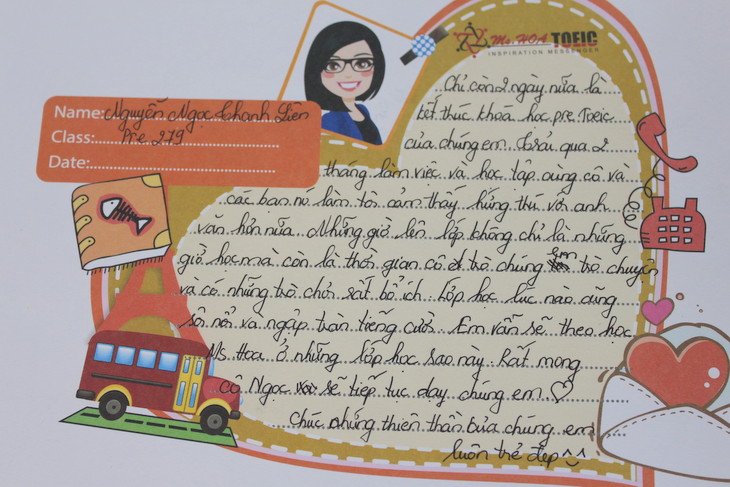 Ms. HOA TOEIC
INSPIRATION MESSENGER
Name: Nguyễn Ngọc Thanh Liên
Class: Pre 279
Date:
Chỉ còn 2 ngày nữa là
kết thúc khoá học pre Toeic
của chúng em. Trải qua 2
tháng làm việc và học tập cùng cô và
các bạn nó làm tôi cảm thấy hứng thú với anh
văn hơn nữa. Những giờ lên lớp không chỉ là những
giờ học mà còn là thời gian cô trò chúng em trò chuyện
và có những trò chơi rất bổ ích. Lớp học lúc nào cũng
sôi nổi và ngập tràn tiếng cười. Em vẫn sẽ theo học
Ms Hoa ở những lớp học sao này. Rất mong
cô Ngọc sẽ tiếp tục dạy chúng em ♡
Chúc những thiên thần của chúng em
luôn trẻ đẹp ^^